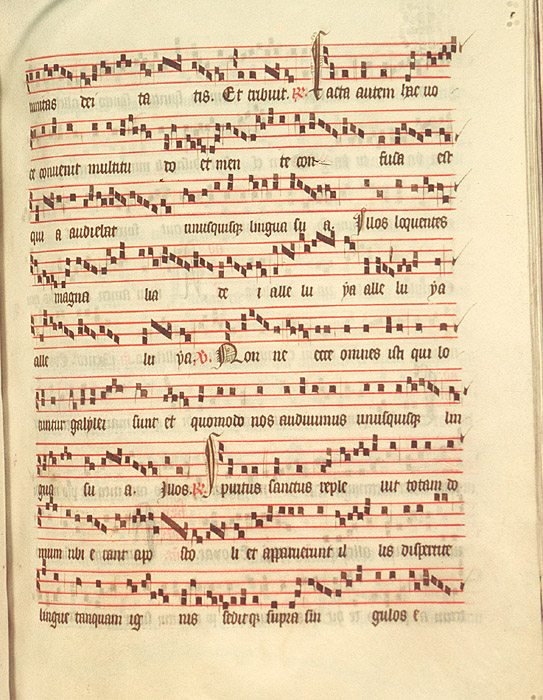 uinitas dei ta tis. Et tribuit. R. Facta autem hac uo
ce conuenit multitu do et men te con fusa est
qui a audiebat unusquisq; lingua su a. Illos loquentes
magna lia de i alle lu ya alle lu ya
alle lu ya. V. Non ne ecce omnes isti qui lo
quntur galylei sunt et quomodo nos audiuimus unusquisq; lin
gua su a. Illos. R. Spiritus sanctus reple uit totam do
mum ubi e rant apo sto li et apparuerunt il lis dispertite
lingue tanquam ig nis seditq; supra sin gulos e